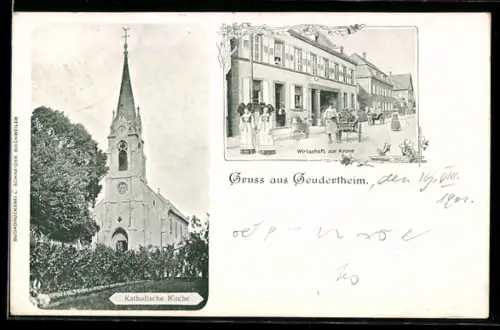 BUCHDRUCKEREI C. SCHNEIDER, BISCHWEILER
Wirtschaft zur Krone
Gruss aus Geudertheim,
den 19. VIII.
1901.
Katholische Kirche